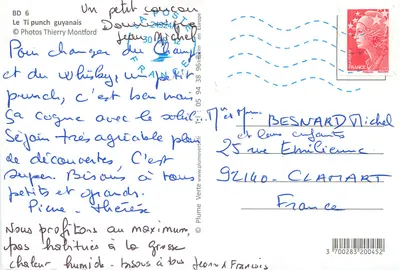 BD 6
Le Ti punch guyanais
© Photos Thierry Montford
Un petit coucou
Dominique
Jean Michel
LA POSTE
FRANCE
Pour changer du Champ
et du whisky, un petit
punch, c'est bien mais
Ça cogne avec le soleil...
Séjour très agréable plein
de découvertes, C'est
super. Bisous à tous
petits et grands.
Pierre - Thérèse
Nous profitons au maximum,
pas habitués à la grosse
chaleur humide - bisous à tous Jean & François
© Plume Verte
Mr et Mme BESNARD Michel
et leurs enfants
25 rue Emilienne
92140 - CLAMART
France
3 700283 200452